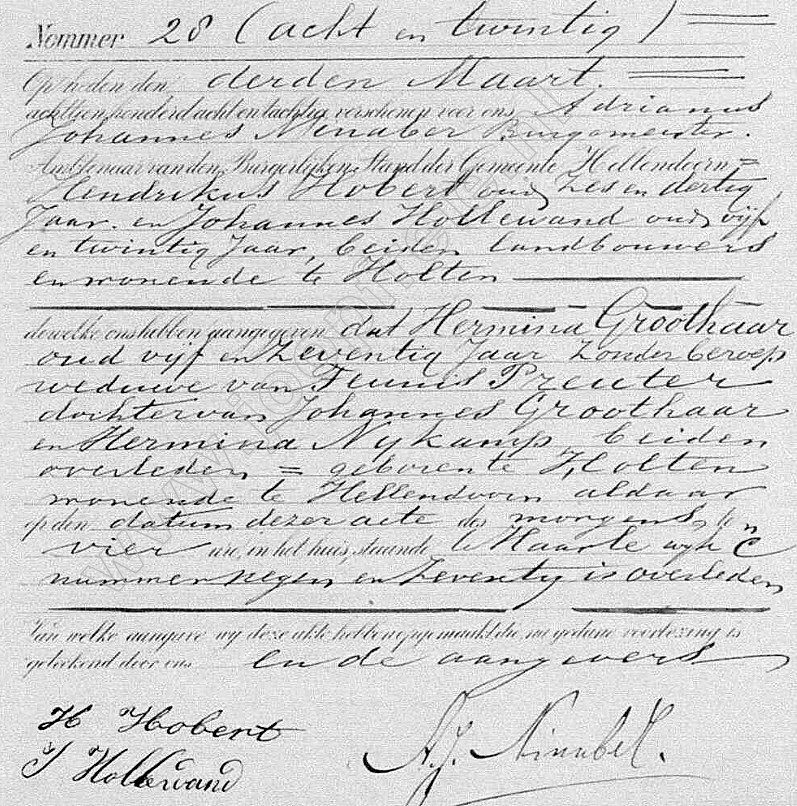 Nommer 28 (acht en twintig)
Op heden den derden Maart.
achttien honderd acht en tachtig verschenen voor ons, Adrianus
Johannes Burgemeester.
Ambtenaar van den Burgerlijken Stand der Gemeente Hellendoorn =
Hendrikus Hobert oud zes en dertig
Jaar. en Johannes Hollewand oud vijf
en twintig Jaar, beiden landbouwers
en wonende te Holten
dewelke ons hebben aangegeven dat Hermina Groothaar
oud vijf en zeventig Jaar zonder beroep
weduwe van Teunis Preuter
dochter van Johannes Groothaar
en Hermina Nykamp beiden
overleden = geboren te Holten
wonende te Hellendoorn aldaar
op den datum dezer acte des morgens, ten
vier ure, in het huis, staande te Haarle wijk C
nummer negen en zeventig is overleden
Van welke aangave wij deze akte hebben opgemaakt die na gedane voorlezing is
geteekend door ons en de aangevers
H Hobert
J Hollewand
A.J.